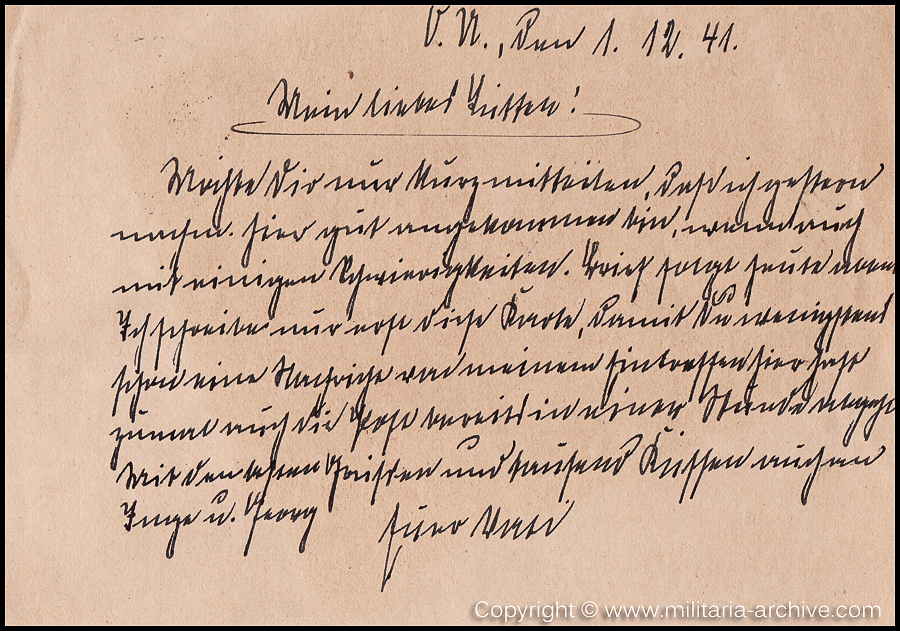 O. U., den 1. 12. 41.
Mein liebes Lütten!
Möchte Dir nur kurz mitteilen, daß ich gestern
nachm. hier gut angekommen bin, wenn auch
mit einigen Schwierigkeiten. Brief folgt heute abend
Ich schreibe nur erst diese Karte, damit Du wenigstens
schon eine Nachricht von meinem Eintreffen hier hast
zumal auch die Post bereits in einer Stunde abgeht
Mit den besten Grüssen und tausend Küssen auch an
Inge u. Georg
Euer Vati
Copyright © www.militaria-archive.com